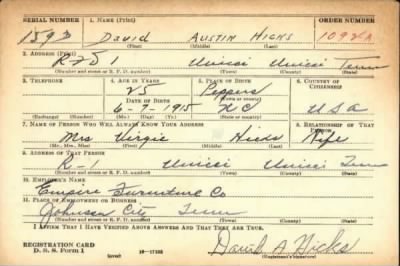 SERIAL NUMBER 1. NAME (Print) ORDER NUMBER
159 David Austin Hicks 1092A
(First) (Middle) (Last)
2. ADDRESS (Print)
R-251 Unicoi Unicoi Tenn
(Number and street or R. F. D. number) (Town) (County) (State)
3. TELEPHONE 4. AGE IN YEARS 5. PLACE OF BIRTH 6. COUNTRY OF CITIZENSHIP
25 Peppers
DATE OF BIRTH (Town or county)
6-9-1915 NC USA
(Exchange) (Number) (Mo.) (Day) (Yr.) (State or country)
7. NAME OF PERSON WHO WILL ALWAYS KNOW YOUR ADDRESS 8. RELATIONSHIP OF THAT PERSON
Mrs Virgie Hicks Wife
(Mr., Mrs., Miss) (First) (Middle) (Last)
9. ADDRESS OF THAT PERSON
R-1 Unicoi Unicoi Tenn
(Number and street or R. F. D. number) (Town) (County) (State)
10. EMPLOYER'S NAME
Empire Furniture Co
11. PLACE OF EMPLOYMENT OR BUSINESS
Johnson City Tenn
(Number and street or R. F. D. number) (Town) (County) (State)
I AFFIRM THAT I HAVE VERIFIED ABOVE ANSWERS AND THAT THEY ARE TRUE.
REGISTRATION CARD
D. S. S. Form 1 (over) 16-17105 David A Hicks
(Registrant's signature)